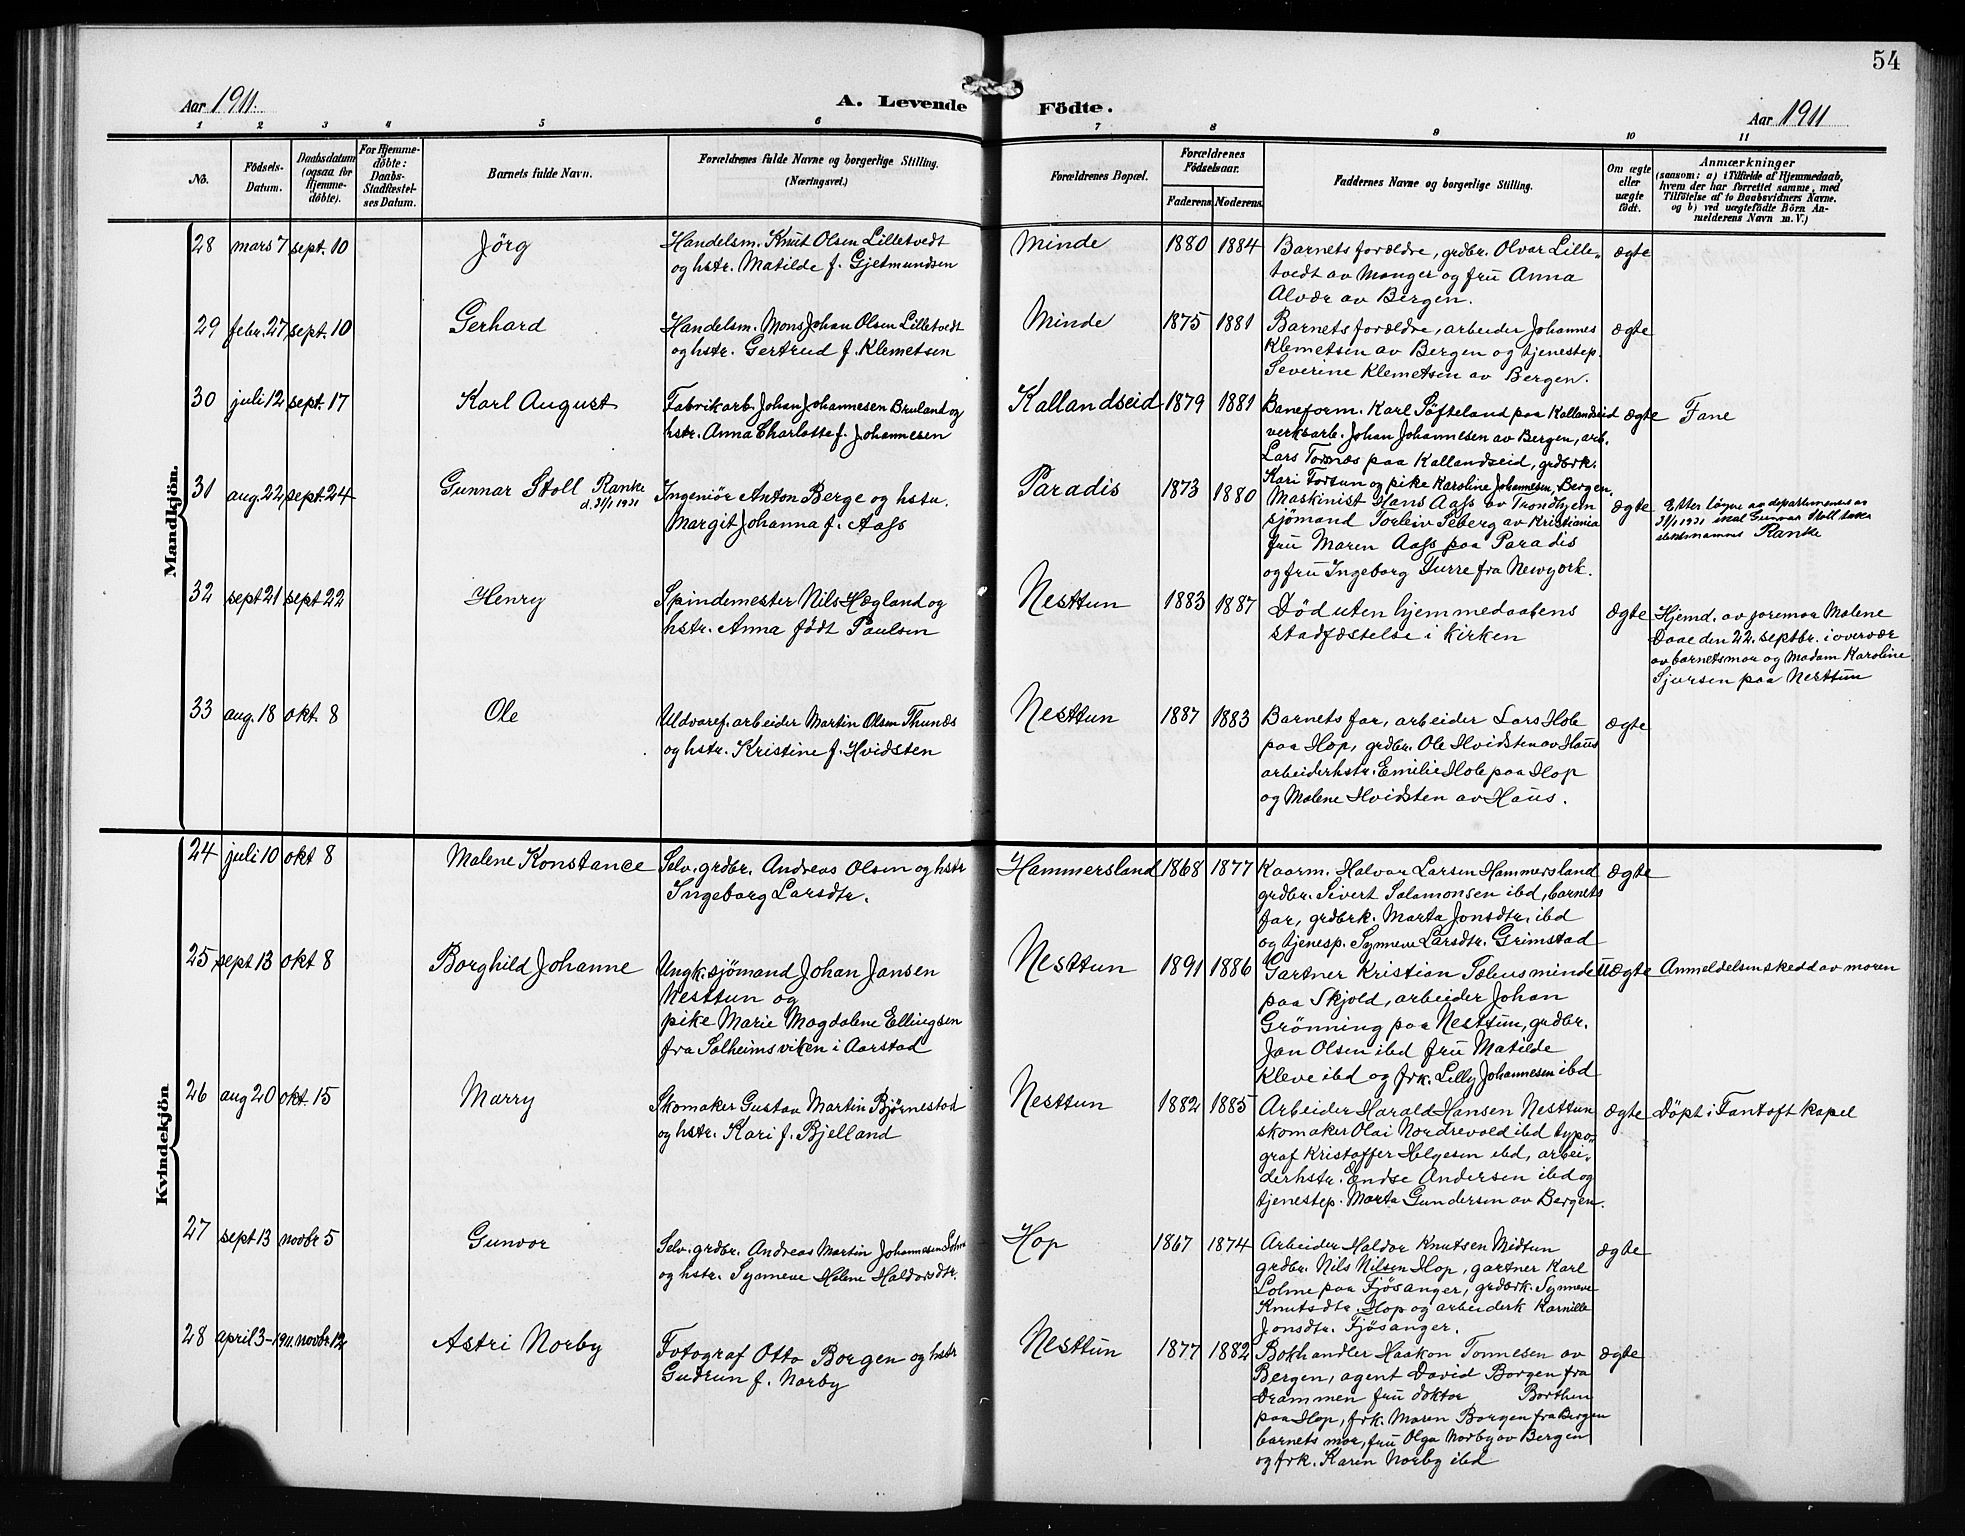 54
Aar 1911.
A. Levende Födte.
Aar 1911
1 2 3 4 5 6 7 8 9 10 11
No.
Födsels-
Datum.
Daabsdatum
(ogsaa for
Hjemme-
döbte).
For Hjemme-
döbte:
Daabs-
Stadfæstel-
ses Datum.
Barnets fulde Navn.
Forældrenes fulde Navne og borgerlige Stilling.
(Næringsvei.)
Forældrenes Bopæl.
Forældrenes
Födselsaar.
Faderens.
Moderens.
Faddernes Navne og borgerlige Stilling.
Om ægte
eller
uægte
födt.
Anmærkninger
(saasom: a) i Tilfælde af Hjemmedaab,
hvem der har forrettet samme, med
Tilföielse af to Daabsvidners Navne.
og b) ved uægtefödte Börn An-
melderens Navn m. V.)
Mandkjön.
28 mars 7 sept. 10
Jörg
Handelsm. Knut Olsen Lilletvedt
og hstr. Matilde f. Gjetmundsen
Minde
1880 1884
Barnets forældre, grdbr. Olvar Lille-
tvedt av Manger og fru Anna
Alvær av Bergen.
ægte
29 febr. 27 sept. 10
Gerhard
Handelsm. Mons Johan Olsen Lilletvedt
og hstr. Gertrud f. Klemetsen
Minde
1875 1881
Barnets forældre, arbeider Johannes
Klemetsen av Bergen og tjenestep.
Severine Klemetsen av Bergen.
ægte
30 juli 12 sept. 17
Karl August
Fabrikarb. Johan Johannesen Bruland og
hstr. Anna Charlotte f. Johannesen
Kallandseid
1879 1881
Baneform. Karl Söfteland paa Kallandseid
verksarb. Johan Johannesen av Bergen, arb.
Lars Tornæs paa Kallandseid, grdbrk.
Kari Fortun og pike Karoline Johannesen, Bergen.
ægte
Fane
31 aug. 22 sept. 24
Gunnar Stoll Ranke
d. 31/1 1931
Ingeniör Anton Berge og hstu.
Margit Johanna f. Aass
Paradis
1873 1880
Maskinist Hans Aass av Trondhjem
sjömand Torleiv Seberg av Kristiania
fru Maren Aass paa Paradis
og fru Ingeborg Furre fra Newyork.
ægte
Etter løyve av departementet av
31/1 1931 skal Gunnar Stoll taka
slektsnamnet Ranke
32 sept 21 sept 22
Henry
Spindemester Nils Hægland og
hstr. Anna födt Paulsen
Nesttun
1883 1887
Död uten hjemmedaabens
stadfæstelse i kirken
ægte
Hjemd. av jormor Malene
Daae den 22. septbr. i overvær
av barnets mor og Madam Karoline
Sjursen paa Nesttun
33 aug. 18 okt. 8
Ole
Uldvaref. arbeider Martin Olsen Thunæs
og hstr. Kristine f. Hvidsten
Nesttun
1887 1883
Barnets far, arbeider Lars Hole
paa Hop, grdbr. Ole Hvidsten av Haus
arbeiderhstr. Emilie Hole paa Hop
og Malene Hvidsten av Haus.
ægte
Kvindekjön
24 juli 10 okt 8
Malene Konstance
Selv. grdbr. Andreas Olsen og hstr
Ingeborg Larsdtr.
Hammersland
1868 1877
Kaarm. Halvor Larsen Hammersland
grdbr. Sivert Salamonsen ibd, barnets
far, grdbrk. Marta Jonsdtr. ibd
og tjenesp. Synneve Larsdtr. Grimstad
ægte
25 sept 13 okt 8
Borghild Johanne
Ungk. sjömand Johan Jansen
Nesttun og
pike Marie Magdalene Ellingsen
fra Solheimsviken i Aarstad
Nesttun
1891 1886
Gartner Kristian Soleusminde
paa Skjold, arbeider Johan
Grönning paa Nesttun, grdbr.
Jan Olsen ibd fru Matilde
Kleve ibd og frk. Lilly Johannesen ibd
uægte
Anmeldelsen skedd av moren
26 aug 20 okt. 15
Marry
Skomaker Gustav Martin Bjørnestad
og hstr. Kari f. Bjelland
Nesttun
1882 1885
Arbeider Harald Hansen Nesttun
skomaker Olai Nordrevold ibd typo-
graf Kristoffer Helgesen ibd, arbei-
derhstr. Endse Andersen ibd og
tjenestep. Marta Gundersen av Bergen.
ægte
Döpt i Fantoft kapel
27 sept 13 novbr 5
Gunvor
Selv. grdbr. Andreas Martin Johannesen
og hstr. Synneve Helene Haldorsdtr.
Hop
1867 1874
Arbeider Haldor Knutsen Midtun
grdbr. Nils Nilsen Hop, gartner Karl
Lolme paa Fjösanger, grdbrk. Synneve
Knutsdtr. Hop og arbeiderk Kornille
Jonsdtr. Fjösanger.
ægte
28 april 3-1911. novbr. 12
Astri Norby
Fotograf Otto Borgen og hstr
Gudrun f. Norby
Nesttun
1877 1882
Bokhandler Haakon Tonnesen av
Bergen, agent David Borgen fra
Drammen fru doktor Borthen
paa Hop, frk. Maren Borgen fra Bergen
barnets mor, fru Olga Norby av Bergen
og frk. Karen Norby ibd
ægte